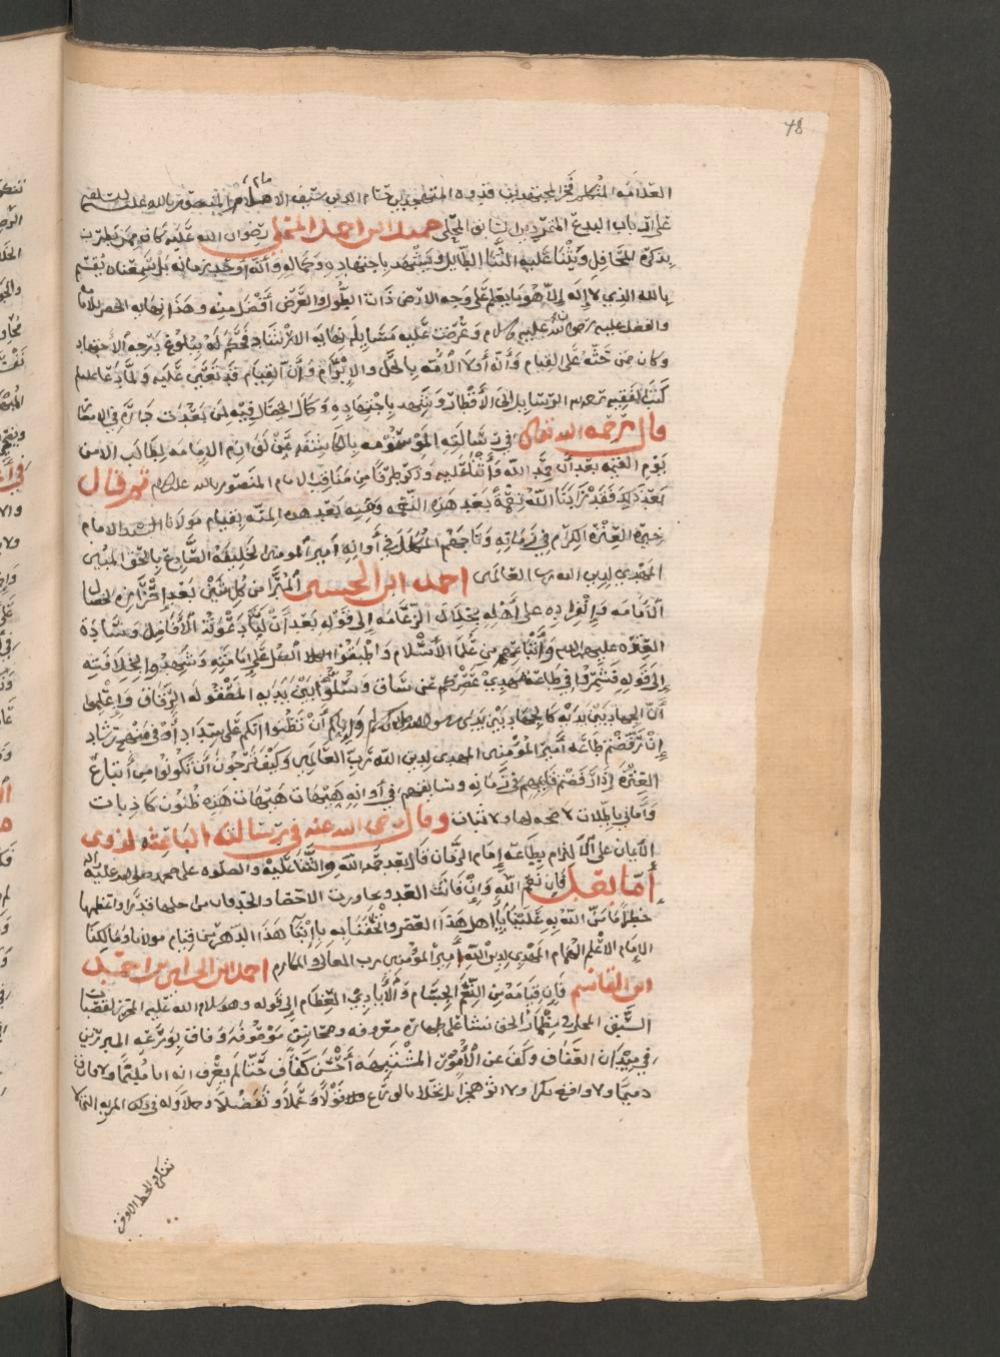 48
العلامه المتكلم فخر المجتهدين قدوه المتقين حسام الدين سيف الاسلام المنصور بالله على
على ارباب البدع المتمردين السابق المجلي حميد ابن احمد المحلي رضوان الله عليه كانو ممن يطرب
بذكره المحافل ويثنا عليه الثنا الطايل ويشهد باجتهاده وكماله وأنه أوحد زمانه بل سمعناه يقسم
بالله الذي لا إله إلا هو ما يعلم على وجه الارض ذات الطول والعرض أفضل منه وهذا نهايه الحصر للامام
والفضل عليهم رضوان الله عليهم وسلم وعرضت عليه مسايل نهايه الاسترشاد فحكم له ببلوغ درجه الاجتهاد
وكان ممن حثه على القيام وأنه أولا الأمه بالحل والإبرام وأن القيام قد تعين عليه ولما دعا عليلم
كتب الفقيه الرسايل الى الأقطار وشهد باجتهاده وكمال الخصال فيه لمن بعدت دياره في الامصار
قال رحمه الله تعالى في رسالته الموسومه بالكاشفه عن لوازم الإمامه لطالب الامن
يوم القيمه بعد أن حمد الله وأثنا عليه وذكر طرفا من مناقب الامام المنصور بالله عليلم ثم قال
بعد ذلك فقد زادنا الله نعمة بعد هذه النعمه ومنه بعد هذه المنه بقيام مولانا السيد الامام
خيرة العترة الكرام في زمانه وتاجهم المكلل في أوانه امير المومنين الخليفه الصادع بالحق المبين
المهدي لدين الله رب العالمين احمد ابن الحسين المبرا من كل شين بعد إحرازه لخصال
الإمامه وإنفراده على أهله بخلال الزعامه إلى قوله بعد أن لبا دعوته الأفاضل وسادة
العتره عليهم السلام وأتباعهم من علما الأسلام وأطبقوا اهل الفضل على إمامته وشهدوا بخلافته
إلى قوله فشمروا في طاعة مهدي عصركم عن ساق وسلوا بين يديه المصقوله الرقاق وإعلموا
أن الجهاد بين يديه كالجهاد بين يدي رسول الله وإياكم أن تظنوا انكم على سداد أو في منهج رشاد
إن رفضتم طاعه أمير المؤمنين المهدي لدين الله رب العالمين وكيف ترجون أن تكونوا من أتباع
العترة إذا رفضتم قايمهم في زمانه وسابقهم في أوانه هيهات هيهات هذه ظنون كاذبات
وأماني باطلات لا صحه لها ولا ثبات وقال رضي الله عنه في رسالته الباعثه لذوي
الأيمان على الالتزام بطاعة إمام الزمان قال بعد حمد الله والثنا عليه والصلوه على محمد صلى الله عليه واله
أما بعد فان نعم الله وإن فاتت العد وجاوزت الاحصا والحد فان من اجلها قدرا واعظمها
خطرا ما من الله به علينا يا اهل هذا العصر واتحفنا به يا إبنا هذا الدهر من قيام مولانا ومالكنا
الإمام الاعلم الهمام المهدي لدين الله أمير المؤمنين رب المعالي والمكارم احمد ابن الحسين بن احمد
ابن القاسم فإن قيامه من النعم الجسام والأيادي العظام إلى قوله وهو سلام الله عليه المحرز لقصبات
السبق المجلي نشا على طهارة معروفه ومحاسن موصوفه وفاق بورعه المبرزين
في ميدان العفاف وكف عن الأمور المشتبهه أحسن كفاف حتا لم يعرف انه اتا مليما ولا قارف
ذميما ولا واقع نكرا ولا هجرا بل تحلا بالورع قولا وعملا وتفضلا وحلا وله في ذلك المرتبه
تذكر والحظ الاوفر